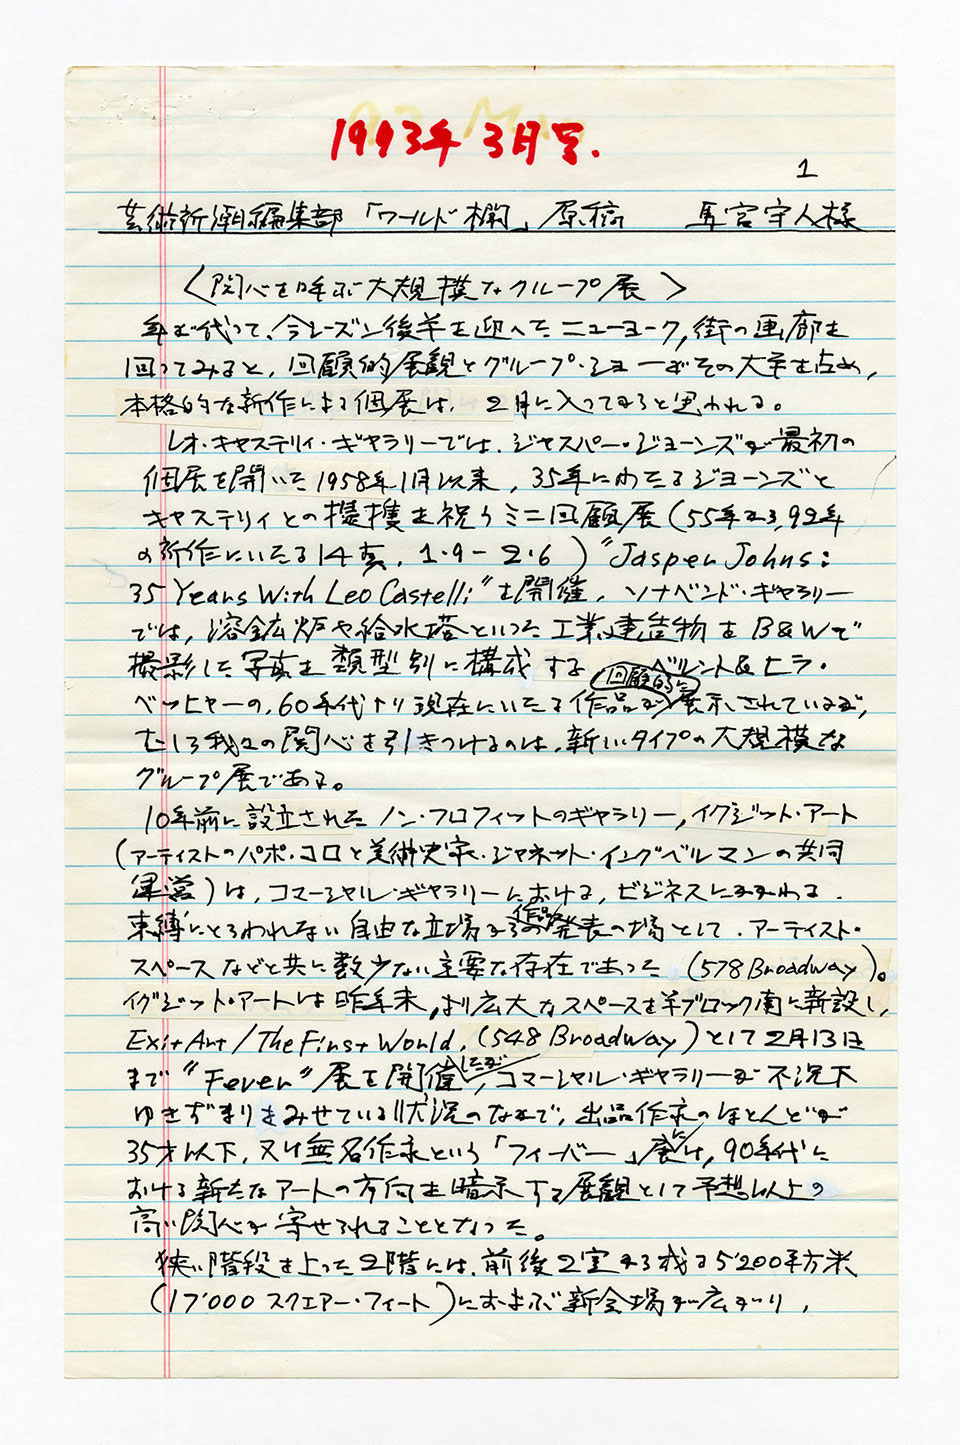 1993年3月号.
1
芸術新潮編集部「ワールド欄」原稿 馬宮守人様
〈関心を呼ぶ大規模なグループ展〉
年が代って、今シーズン後半を迎へたニューヨーク,街の画廊を
回ってみると,回顧的展観とグループ・ショーがその大半を占め,
本格的な新作による個展は,2月に入ってからと思われる。
レオ・キャステリィ・ギャラリーでは,ジャスパー・ジョーンズが最初の
個展を開いた1958年1月以来,35年にわたるジョーンズと
キャステリィとの提携を祝うミニ回顧展(55年から,92年
の新作にいたる14点,1・9-2・6)"Jasper Johns:
35 Years With Leo Castelli"を開催,ソナベンド・ギャラリー
では,溶鉱炉や給水塔といった工業建造物をB&Wで
撮影した写真を類型別に構成するベルント&ヒラ・
ベッヒャーの,60年代より現在にいたる作品が回顧的に展示されているが,
むしろ我々の関心を引きつけるのは,新しいタイプの大規模な
グループ展である。
10年前に設立されたノン・プロフィットのギャラリー,イグジット・アート
(アーティストのパポ・コロと美術史家・ジャネット・イングベルマンの共同
運営)は,コマーシャル・ギャラリーにおける,ビジネスにかかわる
束縛にとらわれない自由な立場からの作品発表の場として,アーティスト・
スペースなどと共に数少ない主要な存在であった(578 Broadway)。
イグジット・アートは昨年末,より広大なスペースを半ブロック南に新設し,
Exit Art/The First World,(548 Broadway)として2月13日
まで"Fever"展を開催したが,コマーシャル・ギャラリーが不況下
ゆきずまりをみせている状況のなかで,出品作家のほとんどが
35才以下,又は無名作家という「フィーバー」展には,90年代に
おける新たなアートの方向を暗示する展観として予想以上の
高い関心が寄せられることとなった。
狭い階段を上った2階には,前後2室から成る5'200平方米
(17'000スクエアー・フィート)におよぶ新会場が広がり,